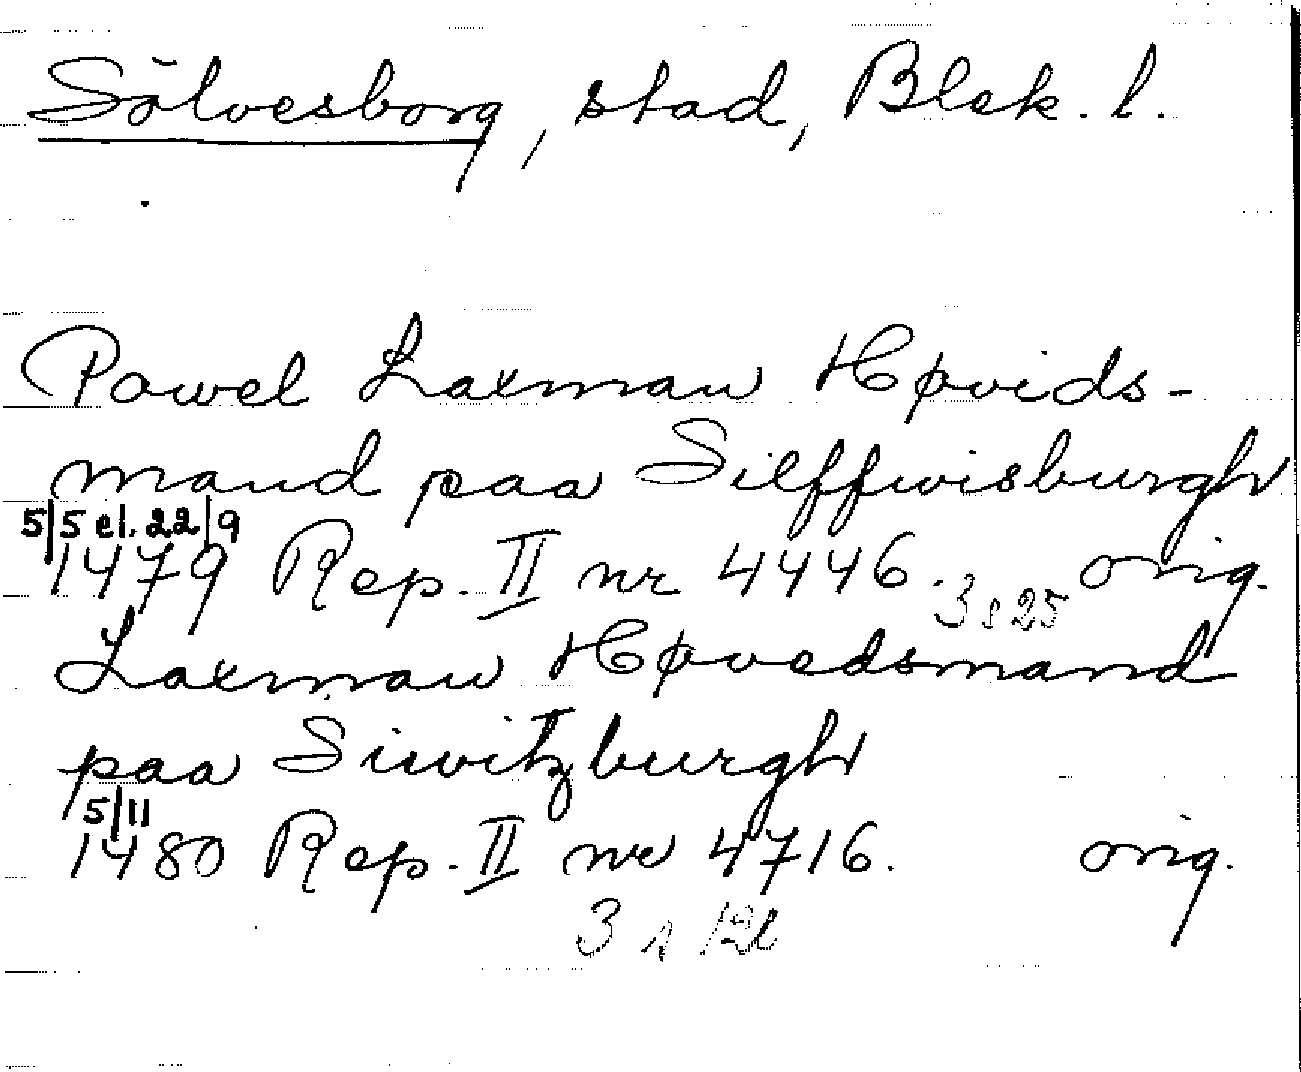 Sölvesborg, stad, Blek. l.
Powel Laxman Høvids-
mand paa Silffwisburgh
5/5 el. 22/9
1479 Rep. II nr 4446. orig.
3 s 25
Laxman Høvedsmand
paa Siwitzburgh
5/11
1480 Rep. II nr 4716. orig.
3 s